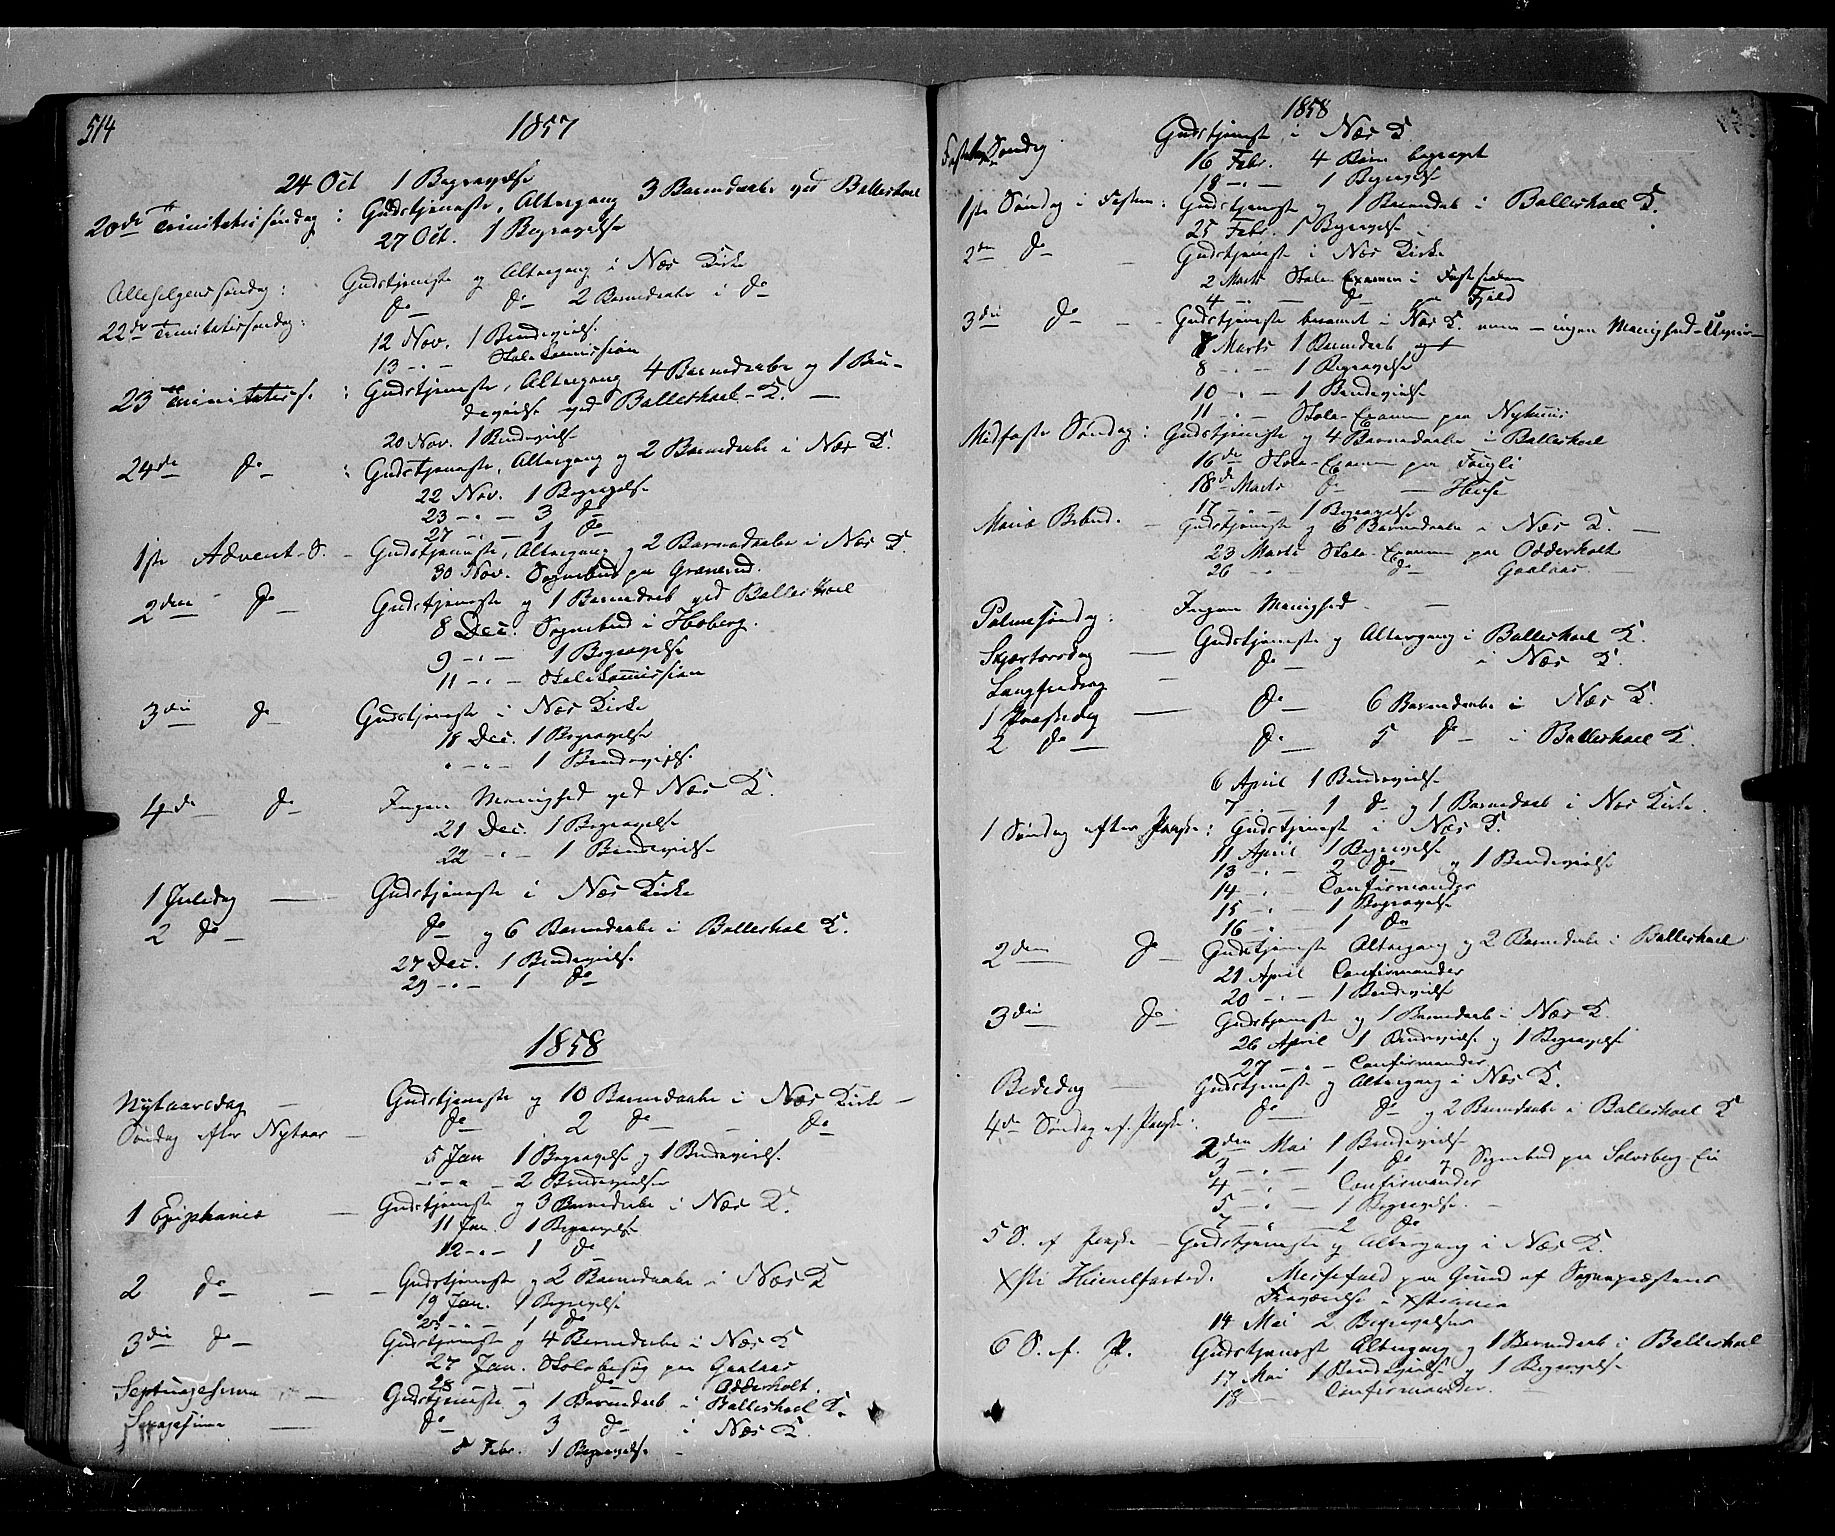 514
1857
24 Oct 1 Begravelse
20de Trinitatissøndag: Gudstjeneste, Altergang 3 Barnedaabe ved Ballishoel
27 Oct. 1 Begravelse
Allehelgenssøndag: Gudstjeneste og Altergang i Næs Kirke
22de Trinitatissøndag: do do 2 Barnedaabe i do
12 Nov. 1 Brudevielse
13 -"- Skolekommission
23 Trinitatiss. : Gudstjeneste, Altergang 4 Barnedaabe og 1 Bru-
devielse ved Ballishoel-K. —
20 Nov. 1 Brudevielse
24de do : Gudstjeneste, Altergang og 2 Barnedaabe i Næs K.
22 Nov. 1 Begravelse
23 -"- 3 do
27 -"- 1 do
1ste Advent-S. - Gudstjeneste, Altergang og 2 Barnedaabe i Næs K.
30 Nov. Sognebud paa Grønerud.
2den do Gudstjeneste og 1 Barnedaab ved Ballishoel
8 Dec. Sognebud i Hoberg.
9 -"- 1 Begravelse
11 -"- Skolekommission
3die do Gudstjeneste i Næs Kirke
18 Dec. 1 Begravelse
" -"- 1 Brudevielse
4de do Ingen Menighed ved Næs K.
21 Dec. 1 Begravelse
22 -"- 1 Brudevielse
1 Juledag — Gudstjeneste i Næs Kirke
2 do — do og 6 Barnedaabe i Ballishoel K.
27 Dec. 1 Brudevielse.
29 -"- 1 do
1858
Nytaarsdag — Gudstjeneste og 10 Barnedaabe i Næs Kirke —
Søndag efter Nytaar — do 2 do — do
5 Jan 1 Begravelse og 1 Brudevielse.
-"- 2 Brudevielser
1 Epiphanias — Gudstjeneste og 3 Barnedaabe i Næs K.
11 Jan. 1 Begravelse
12 -"- 1 do
2 do — Gudstjeneste og 2 Barnedaabe i Næs K
19 Jan. 1 Begravelse
25 -"- 1 do
3die do — Gudstjeneste og 4 Barnedaabe i Næs K
27 Jan. Skolebesøg paa Gaalaas
28 — do — Odderholt.
Septuagesima — Gudstjeneste og 1 Barnedaab i Ballishoel K.
Sexagesima — do 3 do i Næs K.
5 Febr. 1 Begravelse —
1858
Fastel. Søndag Gudstjeneste i Næs K.
16 Febr. 4 Børn begravet
18 -"- 1 Begravelse
1ste Søndag i Fasten: Gudstjeneste og 1 Barnedaab i Ballishoel K.
25 Febr. 1 Begravelse
2den do — Gudstjeneste i Næs Kirke
2 Marts Skole-Examen i
4 -"- do — Fjeld
3die do — Gudstjeneste berammet i Næs K. men — ingen Menighed
8 Marts 1 Barnedaab
8 -"- 1 Begravelse
10 -"- 1 Brudevielse
11 -"- Skole-Examen paa Nykuus
Midfaste Søndag: Gudstjeneste og 4 Barnedaabe i Ballishoel
16de Skole-Examen paa Fougli
18de Marts do —
17 -"- 1 Begravelse
Mariæ Bebud. — Gudstjeneste og 6 Barnedaabe i Næs K. —
23 Marts Skole-Examen paa Odderholt
26 -"- do Gaalaas. —
Palmesøndag: Ingen Menighed. —
Skjærtorsdag — Gudstjeneste og Altergang i Ballishoel K.
Langfredag — do — i Næs K.
1 Paaskedag — do — 6 Barnedaabe i Næs K.
2 do — do — 5 do — i Ballishoel K.
6 April 1 Brudevielse
7 -"- 1 do og 1 Barnedaab i Næs Kirke.
1 Søndag efter Paaske: Gudstjeneste i Næs K.
11 April 1 Begravelse
13 -"- 2 do og 1 Brudevielse
14 -"- Confirmander
15 -"- 1 Begravelse
16 -"- 1 do
2den do — Gudstjeneste Altergang og 2 Barnedaabe i Ballishoel
21 April Confirmander
20 -"- 1 Brudevielse
3die do — Gudstjeneste og 1 Barnedaab i Næs K.
26 April 1 Brudevielse og 1 Begravelse
27 -"- Confirmander
Bededag — Gudstjeneste og Altergang i Næs K.
4de Søndag ef. Paaske. do — do og 2 Barnedaabe i Ballishoel K
2den Mai 1 Brudevielse
3 -"- 1 do og Sognebud paa Solsberg-Eie
4 -"- Confirmander
5 -"- 1 Begravelse. —
7 -"- 2 do
5 S. ef Paaske — Gudstjeneste og Altergang i Næs K.
Xsti Himmelfartsd. Messefald paa Grund af Sognepræstens
Fraværelse i Xstiania
14 Mai 2 Begravelser
6 S. ef. P. Gudstjeneste Altergang og 1 Barnedaab i Ballishoel
17 Mai 1 Brudevielse og 1 Begravelse
18 — Confirmander. —